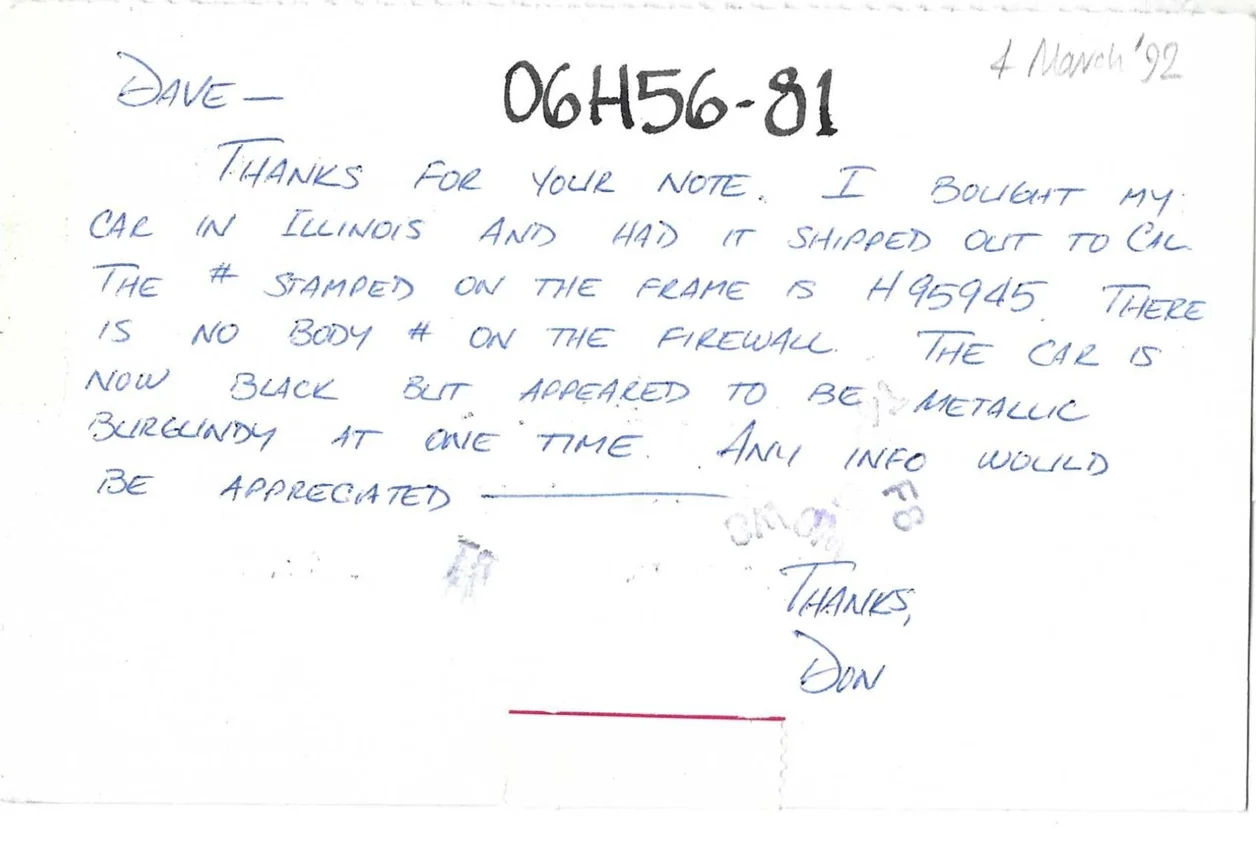 4 March '92
DAVE —
06H56-81
THANKS FOR YOUR NOTE. I BOUGHT MY
CAR IN ILLINOIS AND HAD IT SHIPPED OUT TO CAL
THE # STAMPED ON THE FRAME IS H95945. THERE
IS NO BODY # ON THE FIREWALL. THE CAR IS
NOW BLACK BUT APPEARED TO BE METALLIC
BURGUNDY AT ONE TIME. ANY INFO WOULD
BE APPRECIATED —
F8
THANKS,
DON